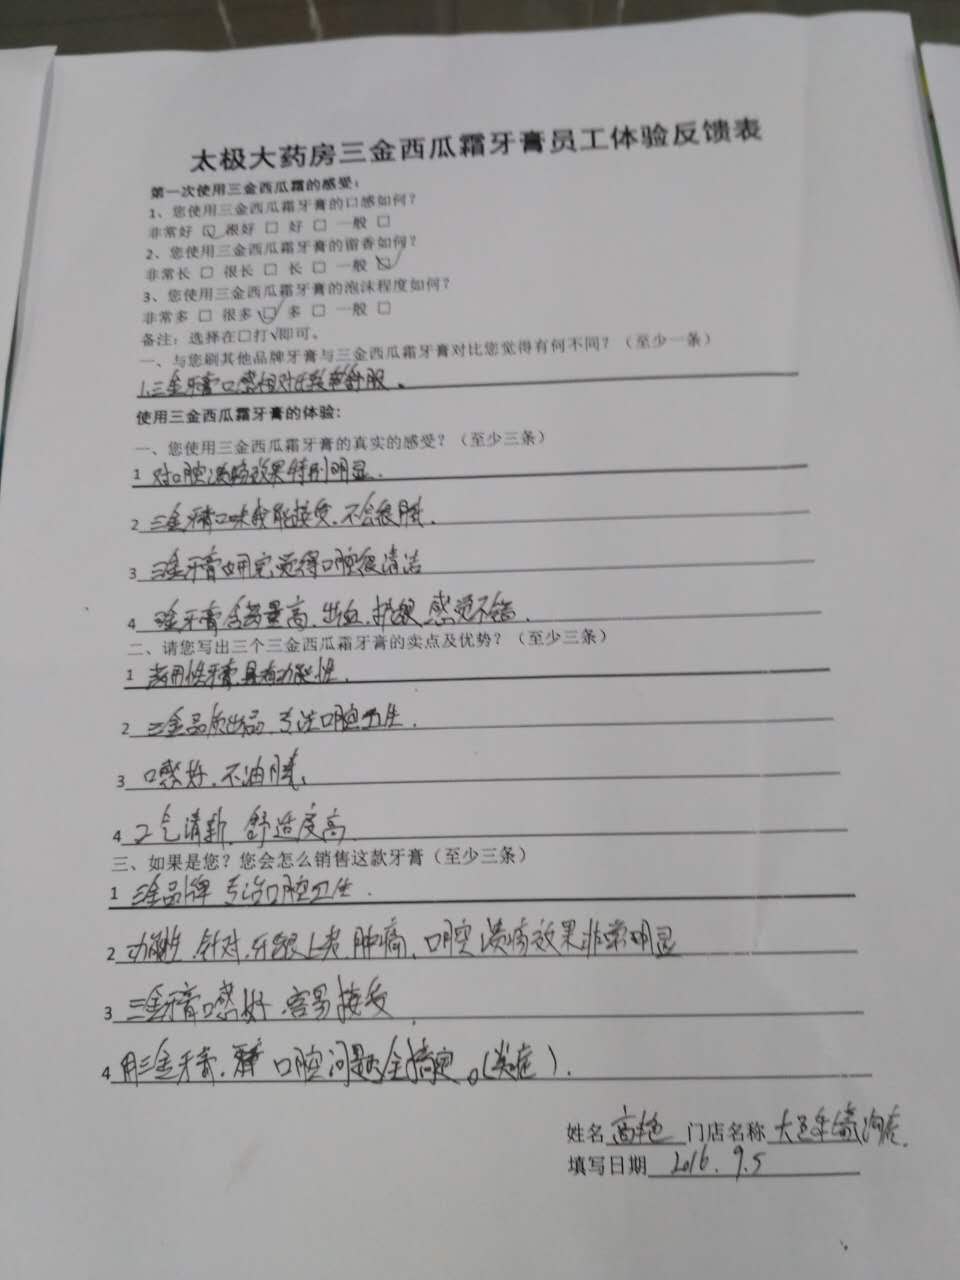 太极大药房三金西瓜霜牙膏员工体验反馈表
第一次使用三金西瓜霜的感受：
1、您使用三金西瓜霜牙膏的口感如何？
非常好 ☑ 很好 □ 好 □ 一般 □
2、您使用三金西瓜霜牙膏的留香如何？
非常长 □ 很长 □ 长 □ 一般 ☑
3、您使用三金西瓜霜牙膏的泡沫程度如何？
非常多 □ 很多 ☑ 多 □ 一般 □
备注：选择在□打√即可。
一、与您刷其他品牌牙膏与三金西瓜霜牙膏对比您觉得有何不同？（至少一条）
1、三金牙膏口感相对比较舒服。
使用三金西瓜霜牙膏的体验：
一、您使用三金西瓜霜牙膏的真实的感受？（至少三条）
1 对口腔溃疡效果特别明显.
2 三金牙膏口味我能接受.不会很腻.
3 三金牙膏使用完觉得口腔很清洁
4 三金牙膏含药量高.出血.护龈.感觉不错.
二、请您写出三个三金西瓜霜牙膏的实点及优势？（至少三条）
1 药用性牙膏具有功能性.
2 三金品质出品.专注口腔卫生.
3 口感好.不油腻.
4 口气清新.舒适度高
三、如果是您？您会怎么销售这款牙膏（至少三条）
1 三金品牌 专治口腔卫生.
2 功能性.针对.牙龈上火.肿痛.口腔溃疡效果非常明显
3 三金牙膏口感好.容易接受.
4 用三金牙膏.口腔问题全搞定。
姓名 高艳 门店名称 大邑
填写日期 2016.9.5